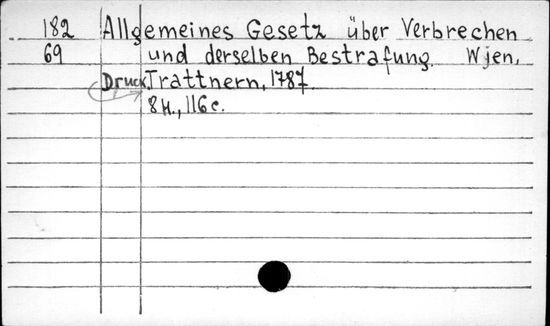 182 Allgemeines Gesetz über Verbrechen
69 und derselben Bestrafung. Wien,
Druck Trattnern, 1787.
8н., 116с.